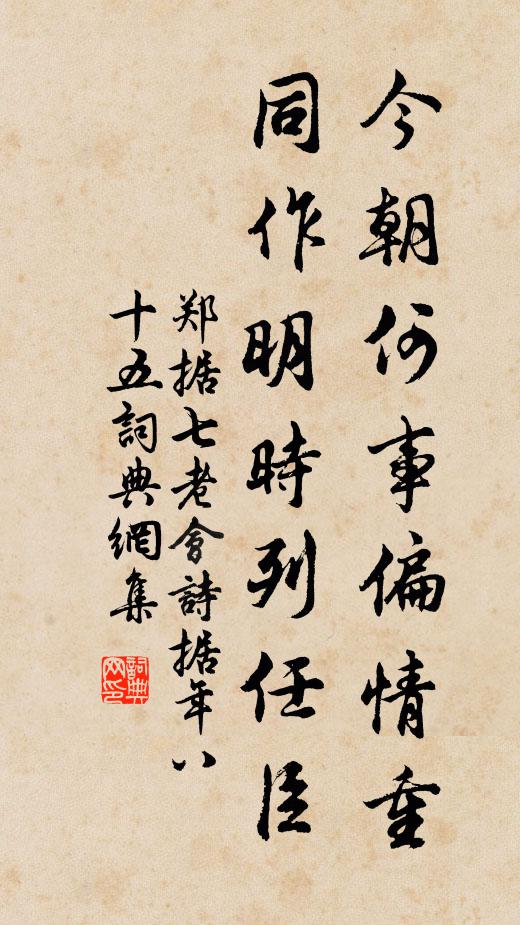 今朝何事偏情重
同作明時列任臣
郑据七老會詩据年八
十五詞典網集
詞典网印